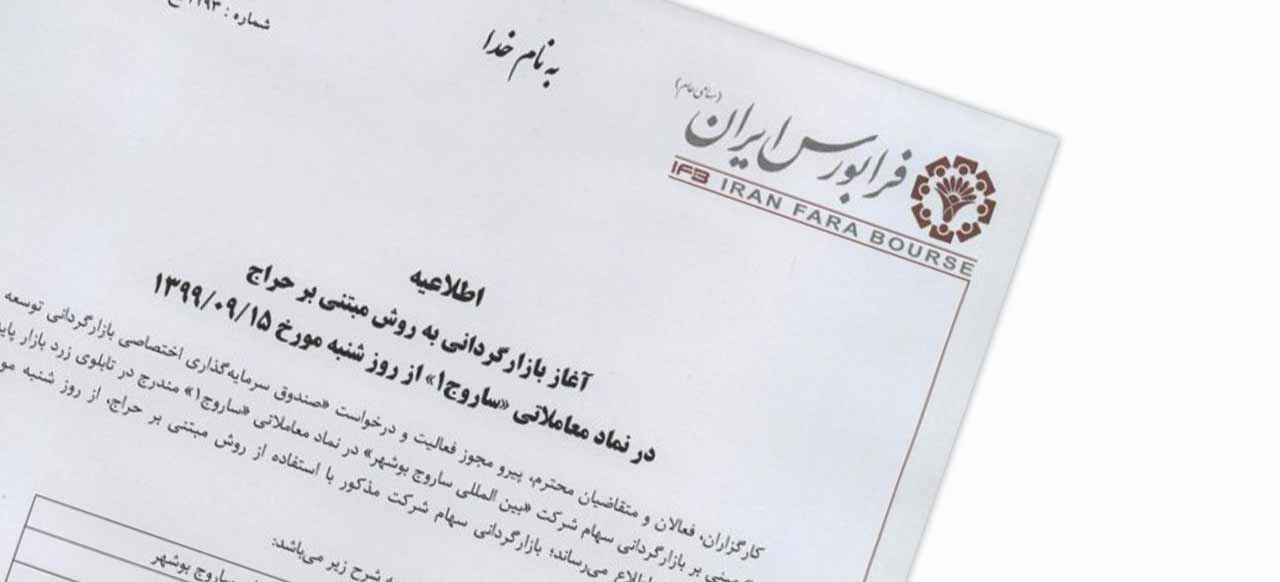 شماره : ۲۹۳
به نام خدا
(سهامی عام)
فرابورس ایران
IFB IRAN FARA BOURSE
اطلاعیه
آغاز بازارگردانی به روش مبتنی بر حراج
در نماد معاملاتی «ساروج۱» از روز شنبه مورخ ۱۳۹۹/۰۹/۱۵
کارگزاران، فعالان و متقاضیان محترم، پیرو مجوز فعالیت و درخواست «صندوق سرمایه‌گذاری اختصاصی بازارگردانی توسعه
بر بازارگردانی سهام شرکت «بین المللی ساروج بوشهر» در نماد معاملاتی «ساروج۱» مندرج در تابلوی زرد بازار
می‌رساند؛ بازارگردانی سهام شرکت مذکور با استفاده از روش مبتنی بر حراج، از روز شنبه
به شرح زیر می‌باشد:
ساروج بوشهر